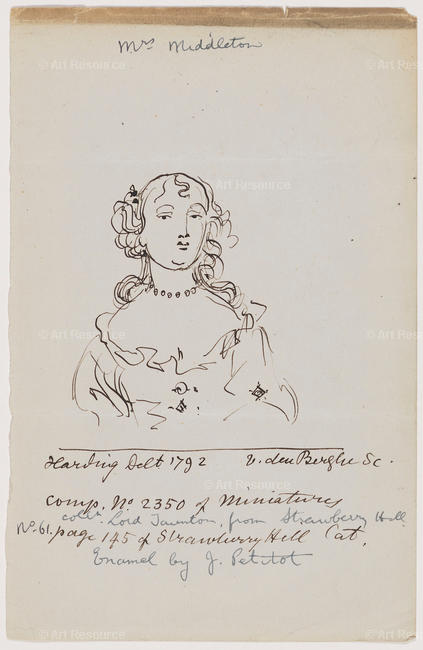 Mrs Middleton
Harding Delt 1792 V. den Berghe Sc.
comp. No 2350 of Miniatures
colln Lord Taunton, from Strawberry Hall
No. 61. page 145 of Strawberry Hill Cat.
Enamel by J. Petitot
© Art Resource